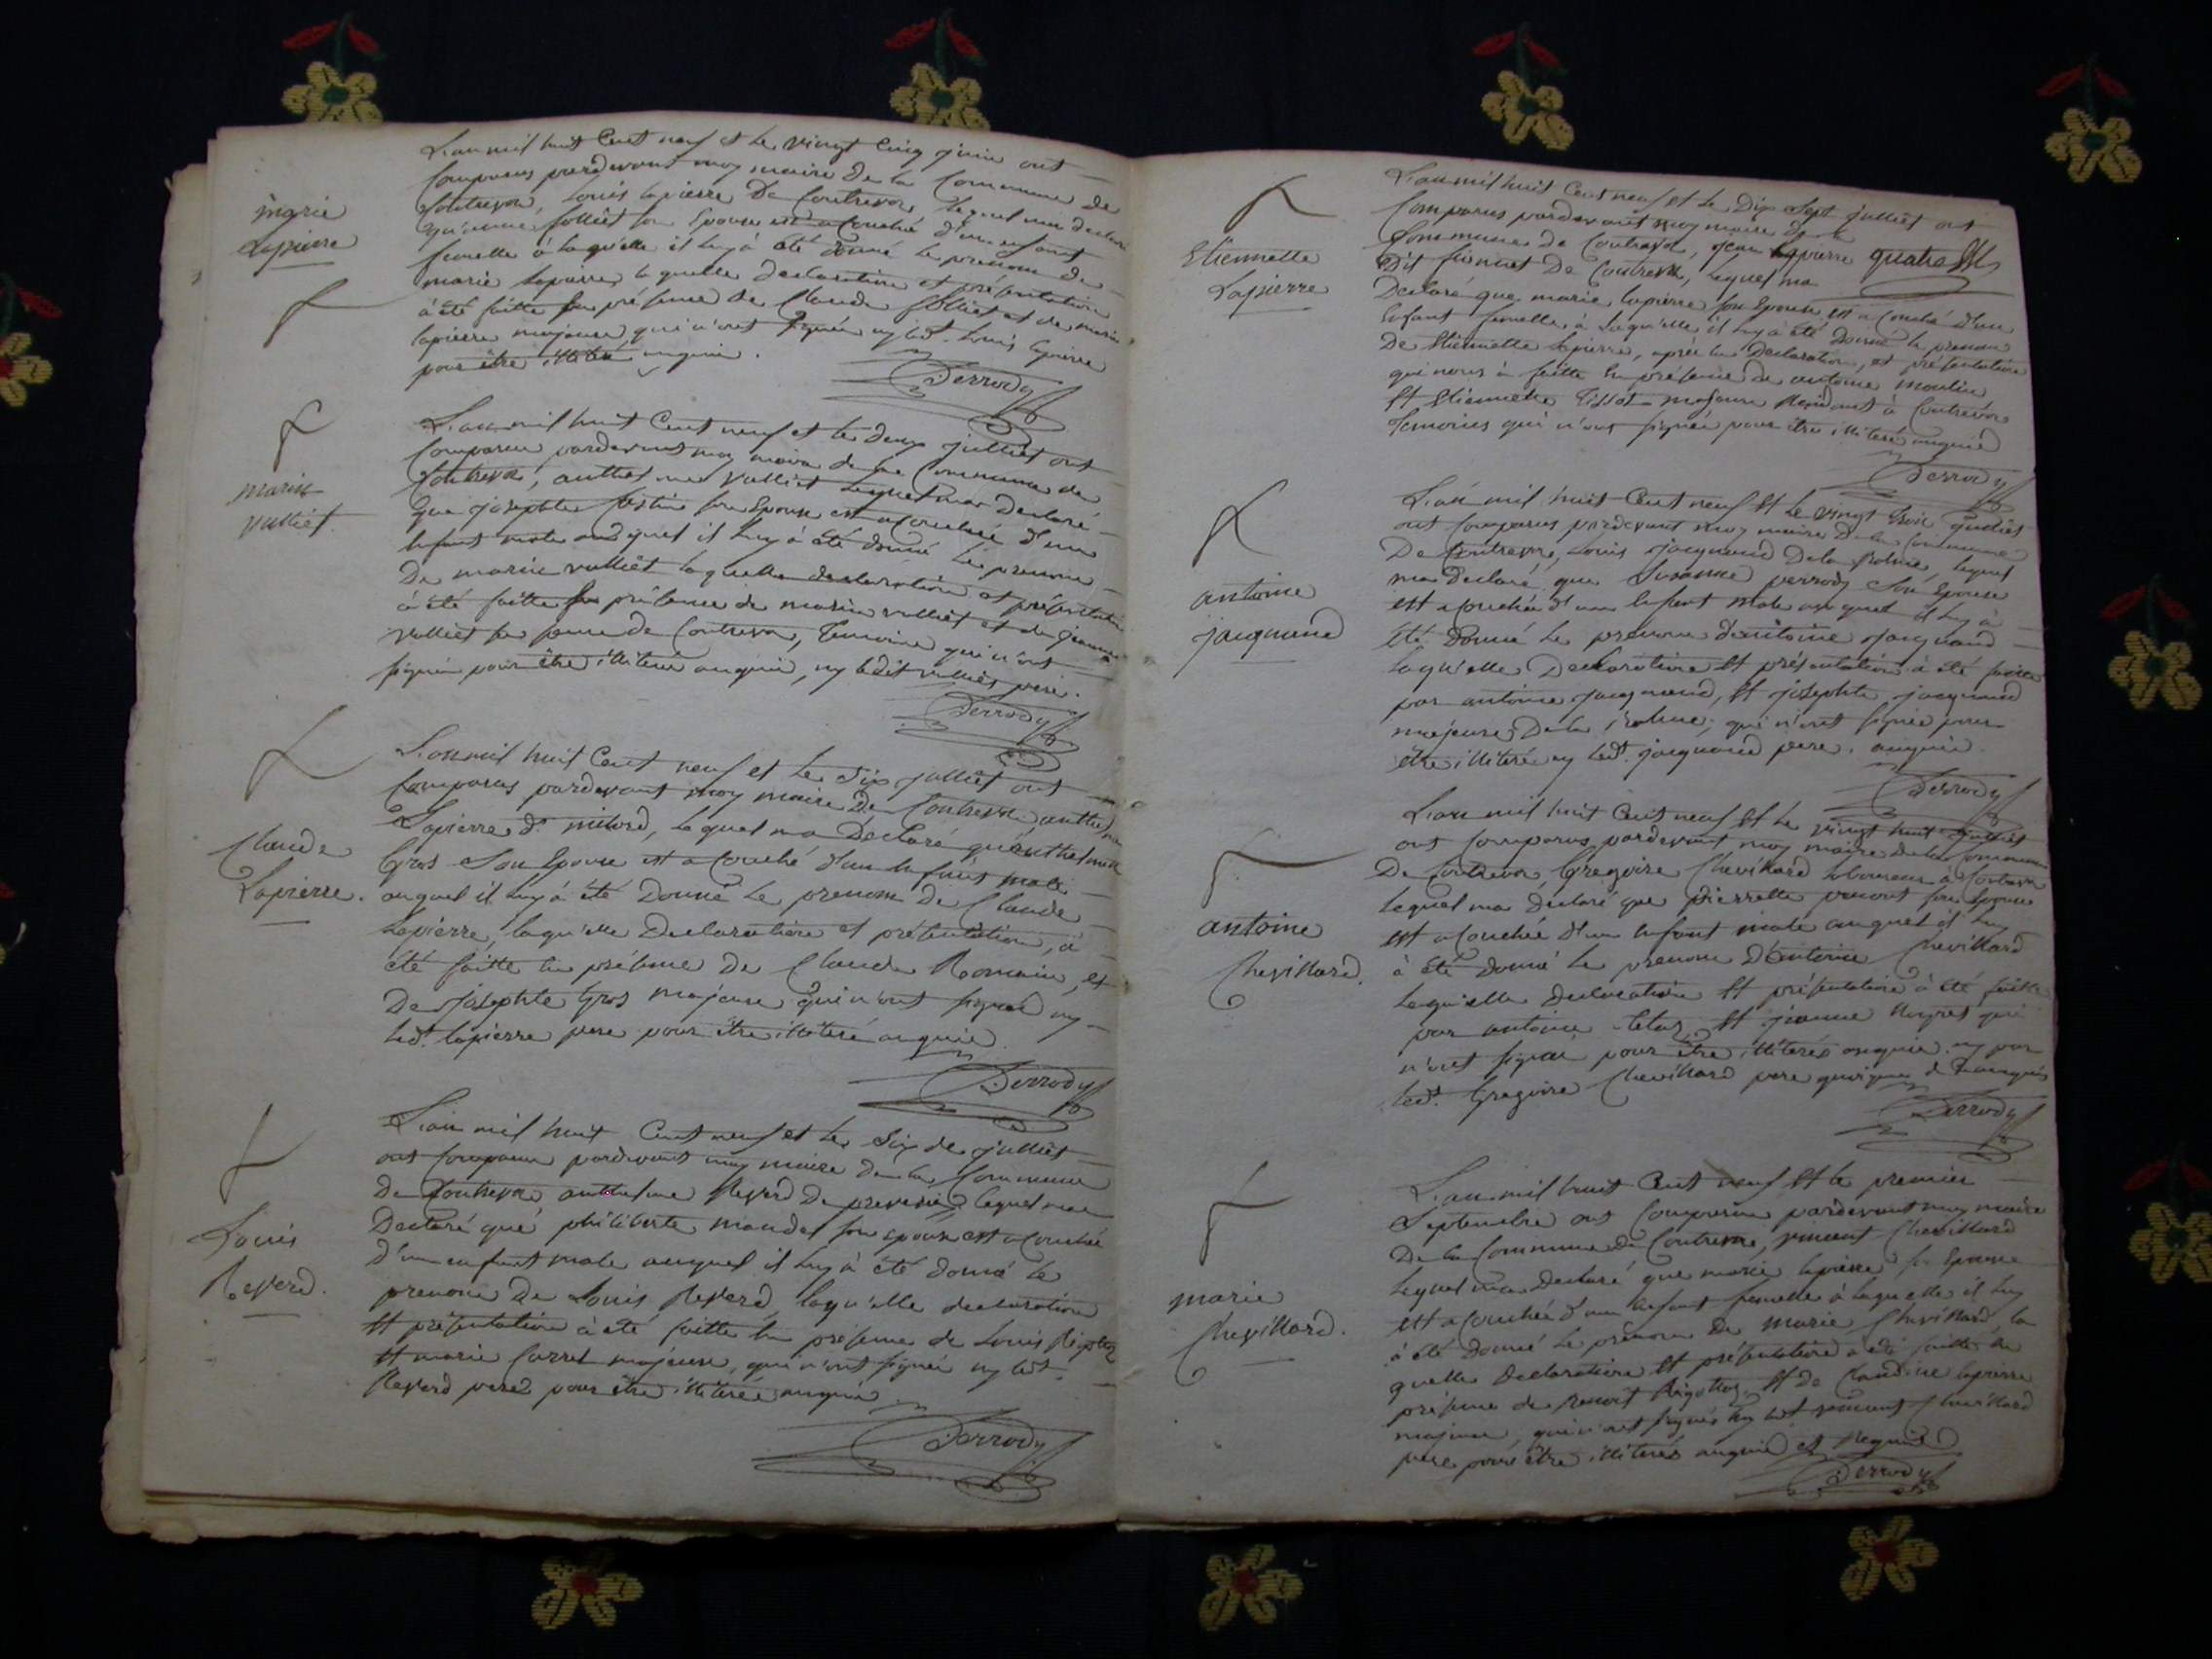 marie
Lapierre
L'an mil huit Cent neuf et le vingt Cinq juin ont
Comparus pardevant moy maire de la Commune de
Contrevoz, Louis lapierre De Contrevoz, lequel ma declaré
folliet son Epouse est acouché d'un enfant
femelle à laquelle il luy à été donné le prenom de
marie lapierre, laquelle declaration et présentation
à été faitte En présence de Claude folliet et de marie
lapierre majeure, qui n'ont signée ny led. Louis lapierre
pour être illiteré enquis.
Perrody
marin
vulliet.
L'an mil huit Cent neuf et le deux julliet ont
Comparu pardevant moy maire de la Commune de
Contrevoz, anthelme vulliet lequel ma declaré
que josephte son Epouse est acouchée d'un
Enfant male auquel il luy à été donné le prenom
De marin vulliet laquelle declaration et présentation
à été faitte En présence de marin vulliet et de jeanne
vulliet de Contrevoz, Temoins qui n'ont
signée pour être illiteré enquis, ny ledit vulliet pere.
Perrody
Claude
Lapierre.
L'an mil huit Cent neuf et le Six julliet ont
Comparus pardevant moy maire De Contrevoz anthelme
Lapierre dt milord, lequel ma Déclaré qu'anthelmette
Gros Son Epouse est acouché d'un Enfant male
auquel il luy à été Donné le prenom de Claude
Lapierre, laqu'elle Declaration et présentation, à
été faitte En présence De Claude Romain, et
De Josephte Gros majeure qui n'ont signée ny
led. lapierre pere pour être illiteré enquis.
Perrody
Louis
Reverd.
L'an mil huit Cent neuf et le Six de julliet
ont Comparu pardevant moy maire de la Commune
de Contrevoz anthelme Reverd De lequel ma
Declaré que philiberte son epouse est acouchée
d'un enfant male auquel il luy à été donné le
prenom De Louis Reverd, laqu'elle declaration
Et présentation à été faitte En présence de Louis
Et marie Carrel majeure, qui n'ont signée ny led.
Reverd pere pour être illiterée enquis.
Perrody
Etiennette
Lapierre
L'an mil huit Cent neuf et le Dix Sept julliet ont
Comparus pardevant moy maire de la
Commune de Contrevoz, jean lapierre quatre
Dit De Contrevoz, lequel ma
Declaré que marie lapierre son Epouse est acouché d'un
Enfant femelle, à laqu'elle il luy à été Donné le prenom
De Etiennette lapierre, après la Declaration, et présentation
qui nous à faitte En présence de antoine moulin
Et Etiennette Tissot majeure Residant à Contrevoz
Temoins qui n'ont signée pour être illiteré enquis
Perrody
antoine
jacquand
L'an mil huit Cent neuf Et Le vingt Trois julliet
ont Comparus pardevant moy maire De la Commune
De Contrevoz, Louis jacquand De la lequel
ma declaré que Susanne perrody Son Epouse
est acouchée d'un Enfant male auquel il luy à
été Donné le prenom d'antoine jacquand
laqu'elle Declaration Et présentation à été faitte
par antoine jacquand, Et josephte jacquand
majeure De la qui n'ont signée pour
être illiteré ny led. jacquand pere. enquis.
Perrody
antoine
Chevillard.
L'an mil huit Cent neuf Et le vingt huit julliet
ont Comparus pardevant moy maire de la Commune
De Contrevoz Gregoire Chevillard laboureur à Contrevoz
lequel ma déclaré que pierrette son Epouse
est acouchée d'un Enfant male auquel il luy
à été donné le prenom D'antoine Chevillard
laqu'elle declaration Et présentation à été faitte
par antoine Et jeanne qui
n'ont signée pour être illiterés enquis. ny par
led. Gregoire Chevillard pere
Perrody
marie
Chevillard.
L'an mil huit Cent neuf Et le premier
Septembre ont Comparu pardevant moy maire
De la Commune de Contrevoz, vincent Chevillard
lequel ma declaré que marie lapierre son Epouse
est acouchée d'un Enfant femelle à laquelle il luy
à été Donné le prénom De marie Chevillard, la
quelle Declaration Et présentation à été faitte En
présence de Et De Claudine lapierre
majeure, qui n'ont signés ny led vincent Chevillard
pere pour être illiterés enquis et Requis
Perrody